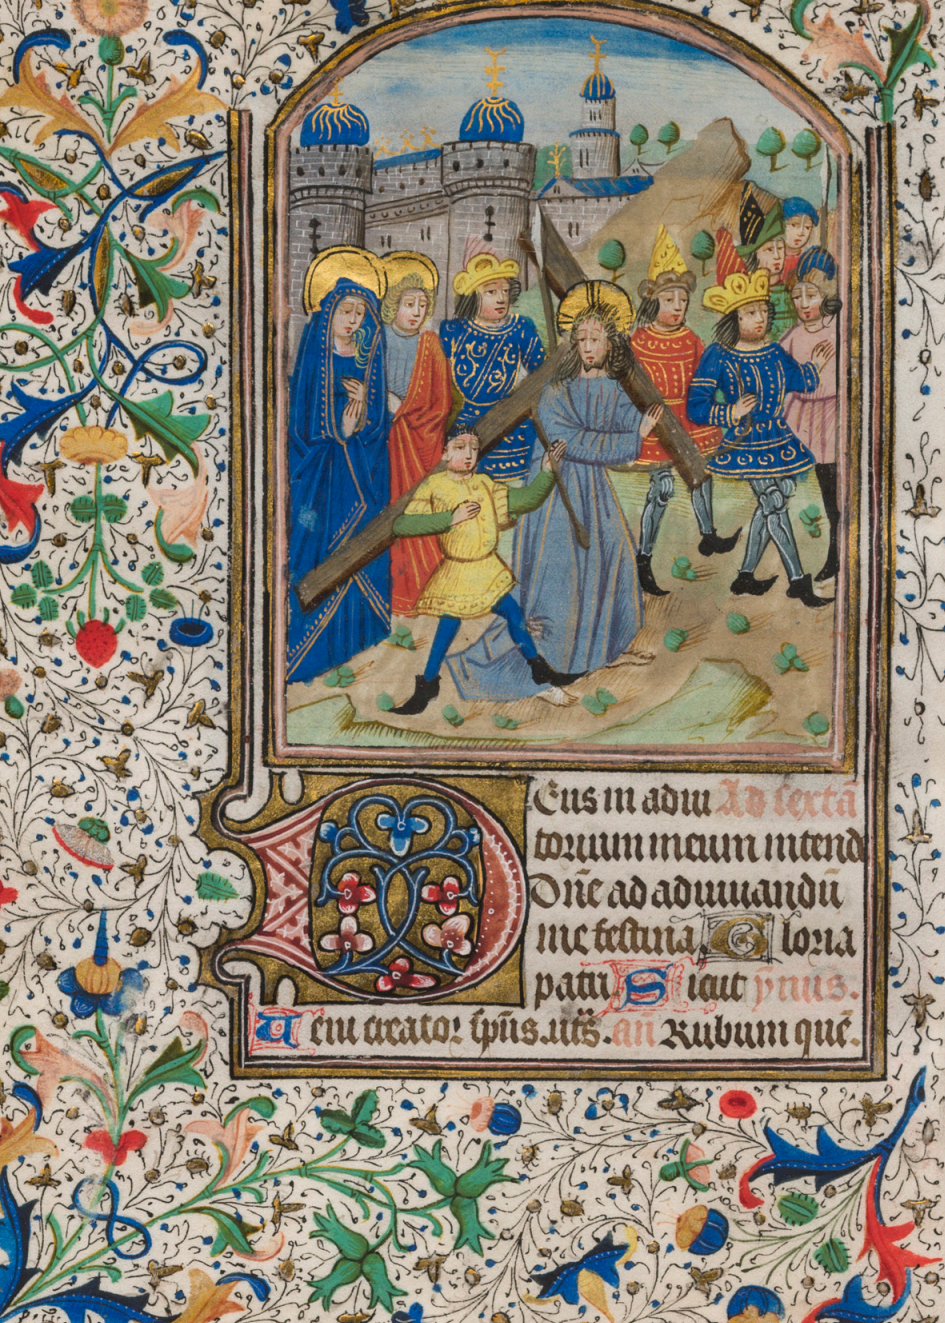 Deus in adiu Ad sextā
torium meum intend
Dn̄e ad adiuuandū
me festina Gloria
patri Sicut ym̄us.
Veni creator sp̄us. uīs. an Rubum quē.